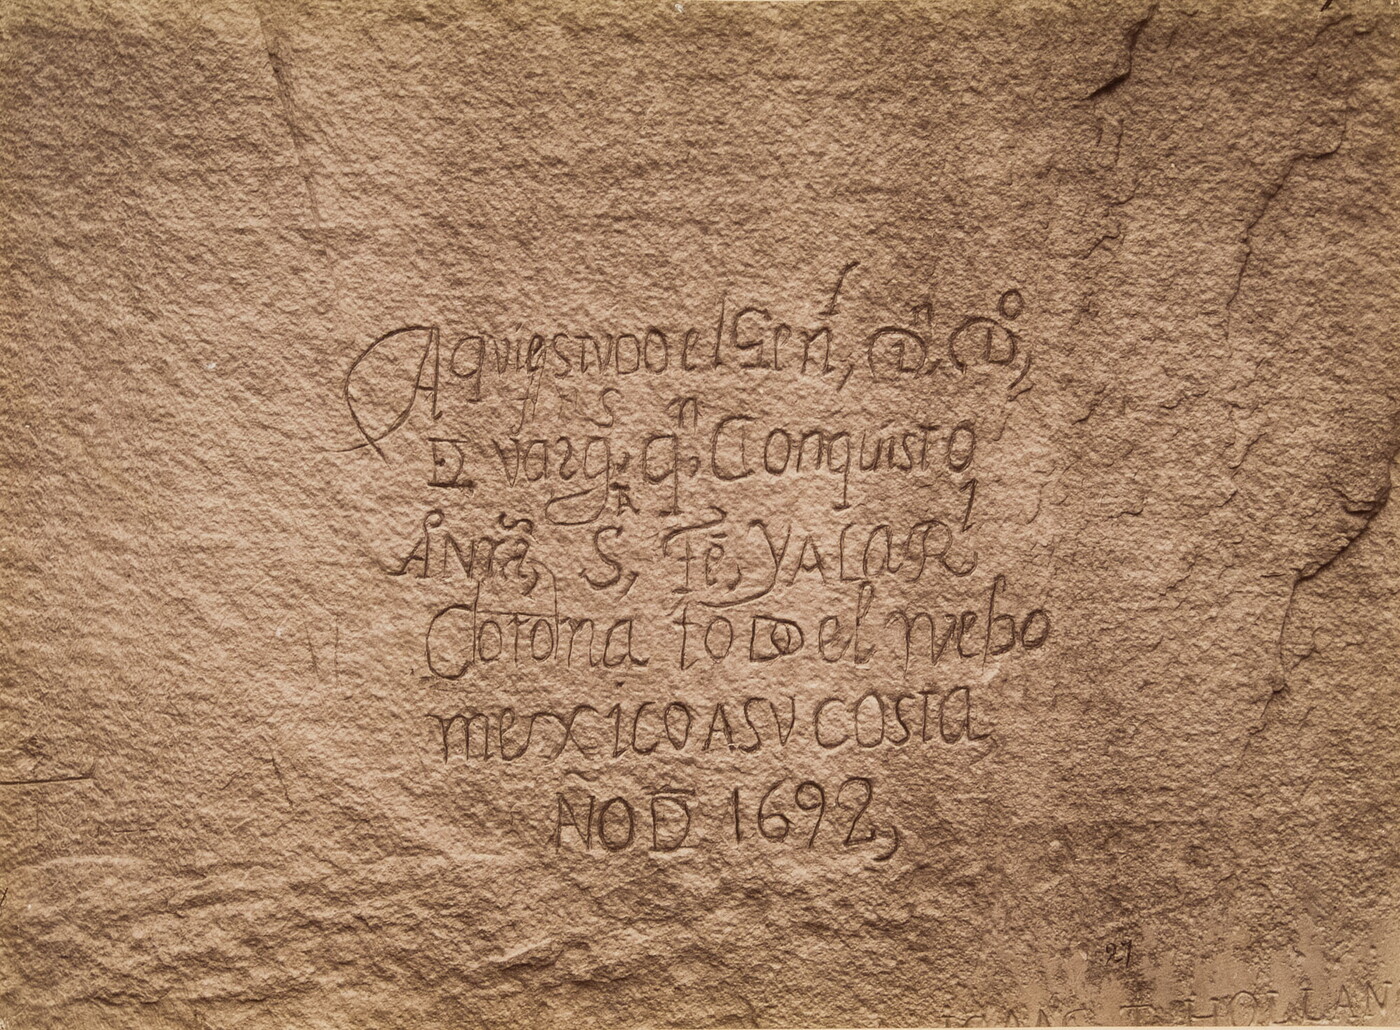 Aquiestubo el Genl, Dn Do,
De vargs, qn Conquisto
ANra, Sa, Fe, YALaRl
Corona toDo el nuebo
mexico ASV COSTA
AÑO DE 1692,
27
ISAAC T HOLLAN